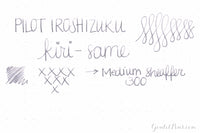 PILOT IROSHIZUKU
kiri-same
→ Medium sheaffer
300
GentlePens.com